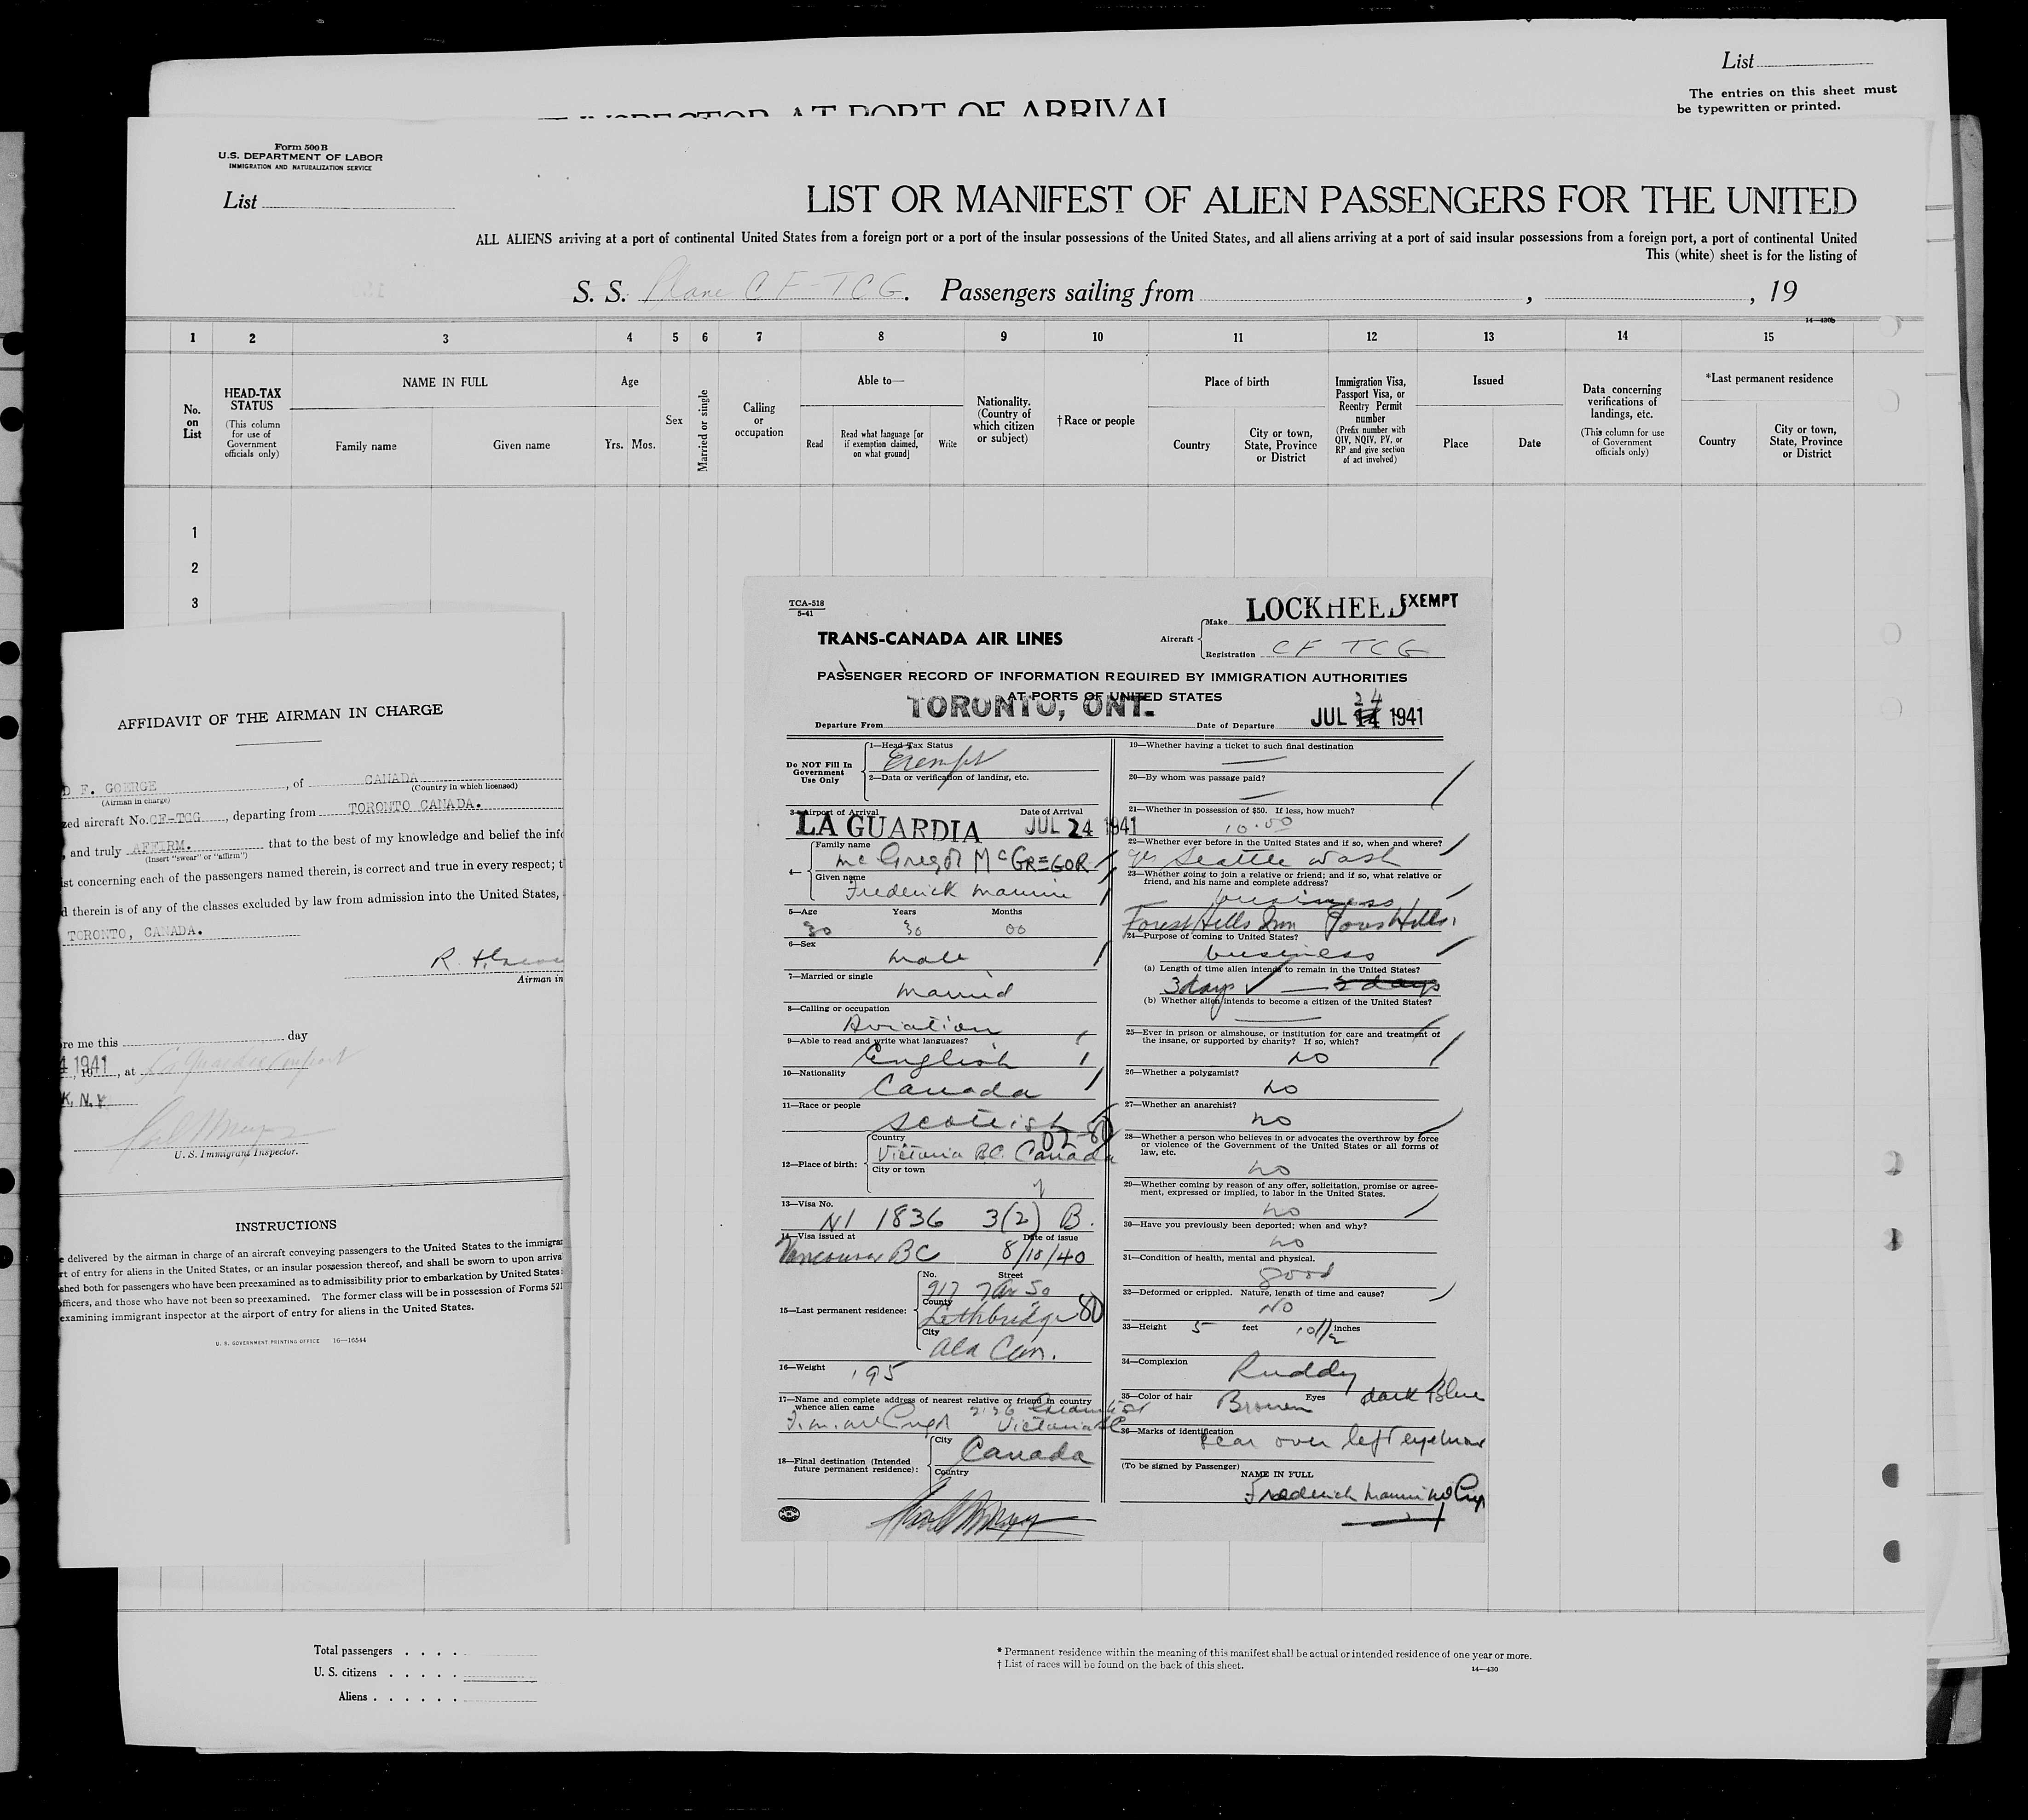 List
The entries on this sheet must
be typewritten or printed.
INSPECTOR AT PORT OF ARRIVAL
Form 500 B
U.S. DEPARTMENT OF LABOR
IMMIGRATION AND NATURALIZATION SERVICE
List
LIST OR MANIFEST OF ALIEN PASSENGERS FOR THE UNITED
ALL ALIENS arriving at a port of continental United States from a foreign port or a port of the insular possessions of the United States, and all aliens arriving at a port of said insular possessions from a foreign port, a port of continental United
This (white) sheet is for the listing of
S. S. Plane CF-TCG. Passengers sailing from , , 19
14—430b
1 2 3 4 5 6 7 8 9 10 11 12 13 14 15
No. on List
HEAD-TAX STATUS
(This column for use of Government officials only)
NAME IN FULL
Family name Given name
Age
Yrs. Mos.
Sex
Married or single
Calling or occupation
Able to—
Read
Read what language [or if exemption claimed, on what ground]
Write
Nationality. (Country of which citizen or subject)
† Race or people
Place of birth
Country
City or town, State, Province or District
Immigration Visa, Passport Visa, or Reentry Permit number
(Prefix number with QIV, NQIV, PV, or RP and give section of act involved)
Issued
Place Date
Data concerning verifications of landings, etc.
(This column for use of Government officials only)
*Last permanent residence
Country
City or town, State, Province or District
1
2
3
AFFIDAVIT OF THE AIRMAN IN CHARGE
D F. GOERGE , of CANADA
(Airman in charge) (Country in which licensed)
zed aircraft No. CF-TCG , departing from TORONTO CANADA.
, and truly AFFIRM. that to the best of my knowledge and belief the info
(Insert "swear" or "affirm")
ist concerning each of the passengers named therein, is correct and true in every respect; t
d therein is of any of the classes excluded by law from admission into the United States,
TORONTO, CANADA.
Airman in
re me this day
4 1941 , 19 , at La Guardia Airport
K, N.Y.
U. S. Immigrant Inspector.
INSTRUCTIONS
e delivered by the airman in charge of an aircraft conveying passengers to the United States to the immigrar
rt of entry for aliens in the United States, or an insular possession thereof, and shall be sworn to upon arriva
shed both for passengers who have been preexamined as to admissibility prior to embarkation by United States
officers, and those who have not been so preexamined. The former class will be in possession of Forms 521
examining immigrant inspector at the airport of entry for aliens in the United States.
U. S. GOVERNMENT PRINTING OFFICE 16—16544
TCA-518
5-41
TRANS-CANADA AIR LINES
Aircraft
Make LOCKHEED EXEMPT
Registration CF TCG
PASSENGER RECORD OF INFORMATION REQUIRED BY IMMIGRATION AUTHORITIES
AT PORTS OF UNITED STATES
Departure From TORONTO, ONT. Date of Departure JUL 14 24 1941
Do NOT Fill In Government Use Only
1—Head Tax Status
Exempt
2—Data or verification of landing, etc.
3—Airport of Arrival Date of Arrival
LA GUARDIA JUL 24 1941
4—
Family name
McGregor McGREGOR
Given name
Frederick Mannin
5—Age Years Months
30 30 00
6—Sex
Male
7—Married or single
Married
8—Calling or occupation
Aviation
9—Able to read and write what languages?
English
10—Nationality
Canada
11—Race or people
Scottish
12—Place of birth:
Country
Victoria B.C. Canada
City or town
13—Visa No.
NI 1836 3(2) B.
14—Visa issued at Date of issue
Vancouver BC 8/10/40
15—Last permanent residence:
No. Street
917 7 Av So
County
Lethbridge 80
City
Alta Can.
16—Weight
195
17—Name and complete address of nearest relative or friend in country
whence alien came
Victoria BC
18—Final destination (Intended
future permanent residence):
City
Canada
Country
19—Whether having a ticket to such final destination
20—By whom was passage paid?
21—Whether in possession of $50. If less, how much?
10.00
22—Whether ever before in the United States and if so, when and where?
yes Seattle Wash
23—Whether going to join a relative or friend; and if so, what relative or
friend, and his name and complete address?
business
Forest Hills Inn Forest Hills.
24—Purpose of coming to United States?
business
(a) Length of time alien intends to remain in the United States?
3 days
(b) Whether alien intends to become a citizen of the United States?
25—Ever in prison or almshouse, or institution for care and treatment of
the insane, or supported by charity? If so, which?
no
26—Whether a polygamist?
no
27—Whether an anarchist?
no
28—Whether a person who believes in or advocates the overthrow by force
or violence of the Government of the United States or all forms of
law, etc.
no
29—Whether coming by reason of any offer, solicitation, promise or agree-
ment, expressed or implied, to labor in the United States.
no
30—Have you previously been deported; when and why?
no
31—Condition of health, mental and physical.
good
32—Deformed or crippled. Nature, length of time and cause?
No
33—Height 5 feet 10 1/2 inches
34—Complexion Ruddy
35—Color of hair Brown Eyes dark Blue
36—Marks of identification
Scar over left eyebrow
(To be signed by Passenger)
NAME IN FULL
Frederick Mannin McGregor
Total passengers . . . .
U. S. citizens . . . . .
Aliens . . . . . .
* Permanent residence within the meaning of this manifest shall be actual or intended residence of one year or more.
† List of races will be found on the back of this sheet.
14—430